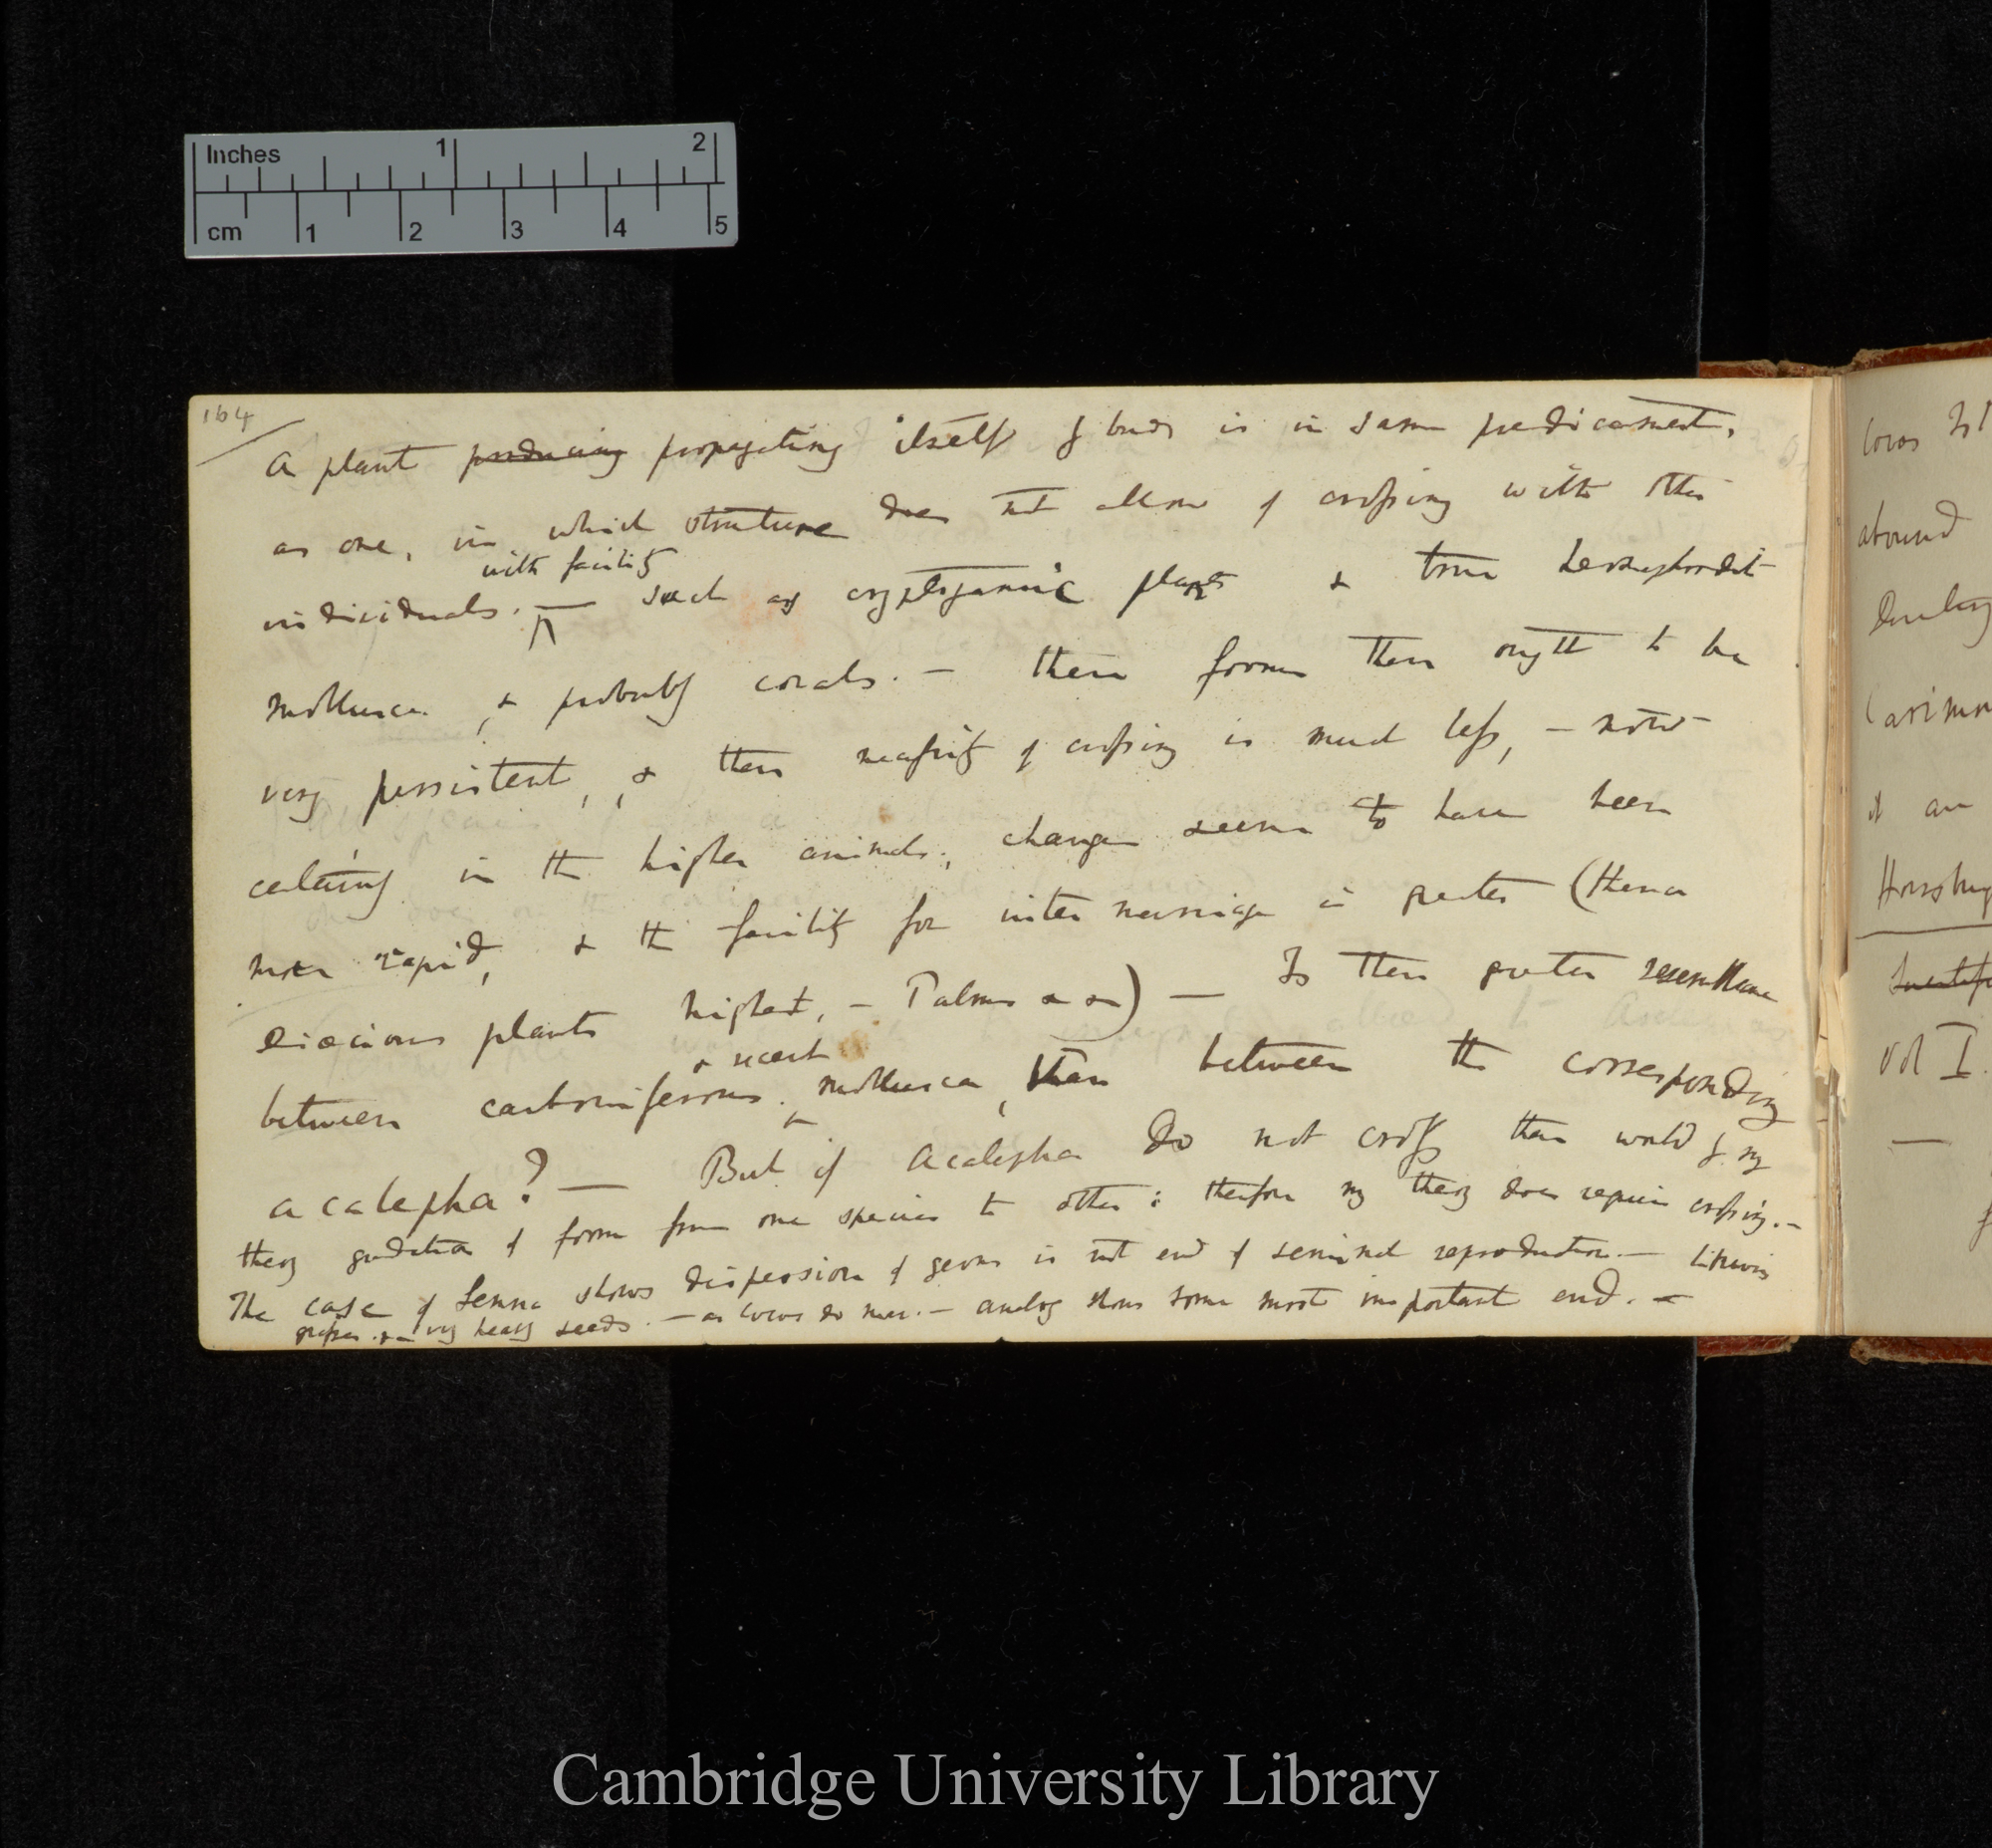 Inches 1 2
cm 1 2 3 4 5
164
A plant producing propagating itself by buds is in same predicament,
as one, in which structure does not allow of crossing with other
with facility
individuals. — such as cryptogamic plants & true hermaphrodite
mollusca, & probably corals. — these forms then ought to be
very persistent, & then necessity of crossing is much less, — now
certainly in the higher animals, changes seems to have been
more rapid, & the facility for inter marriage is greater (there
diœcious plants highest, — Palms &c &c) — Is there greater resemblance
& recent
between carboniferous mollusca, than between the corresponding
acalepha? — But if acalepha do not cross then would by my
theory gradation of form from one species to other: therefore my theory does require crossing. —
The case of Lemna shows dispersion of germs is not end of seminal reproduction. — Likewise
grasses &c very heavy seeds. — as cocos do mer. — analogy shows some most important end. —
cocos
abound
it are
Horsburg
Vol I.
—
Cambridge University Library